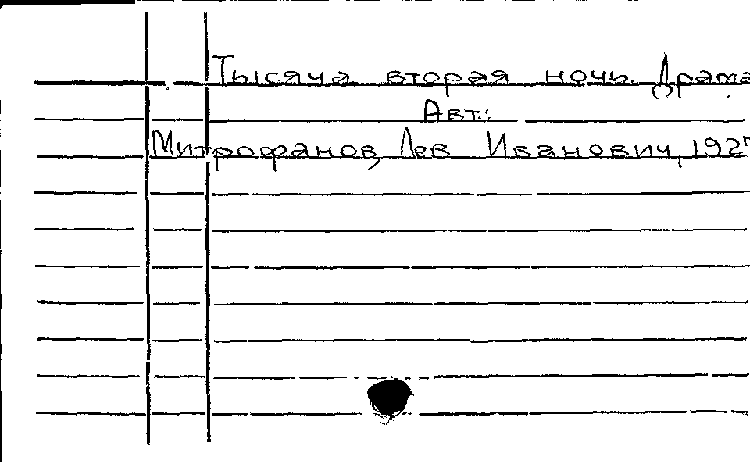 Тысяча вторая ночь. Драма
Авт.:
Митрофанов, Лев Иванович, 1927